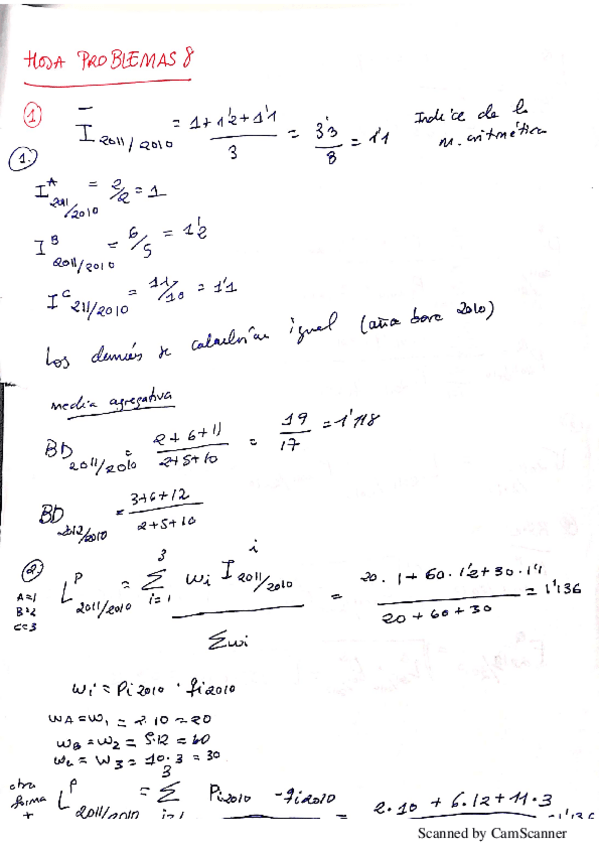 HOJA PROBLEMAS 8
① I̅ 2011/2010 = 1+1'2+1'1 / 3 = 3'3 / 8 = 1'1 Indice de la m. aritmética
1.
I^A 2011/2010 = 2/2 = 1
I^B 2011/2010 = 6/5 = 1'2
I^C 211/2010 = 11/10 = 1'1
Los demás se calcularían igual (año base 2010)
media agregativa
BD 2011/2010 = 2+6+11 / 2+5+10 = 19/17 = 1'118
BD 2012/2010 = 3+6+12 / 2+5+10
2. L^P 2011/2010 = 3 Σ i=1 wi I^i 2011/2010 / Σwi = 20.1+60.1'2+30.1'1 / 20+60+30 = 1'136
A=1
B=2
C=3
wi = Pi2010 · qi2010
wA = w1 = 2.10 = 20
wB = w2 = 5.12 = 60
wc = w3 = 10.3 = 30
otra forma + L^P 2011/2010 = 3 Σ i=1 Pi2010 - qi2010 = 2.10 + 6.12 + 11.3
Scanned by CamScanner